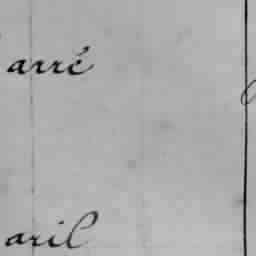 arré
aril